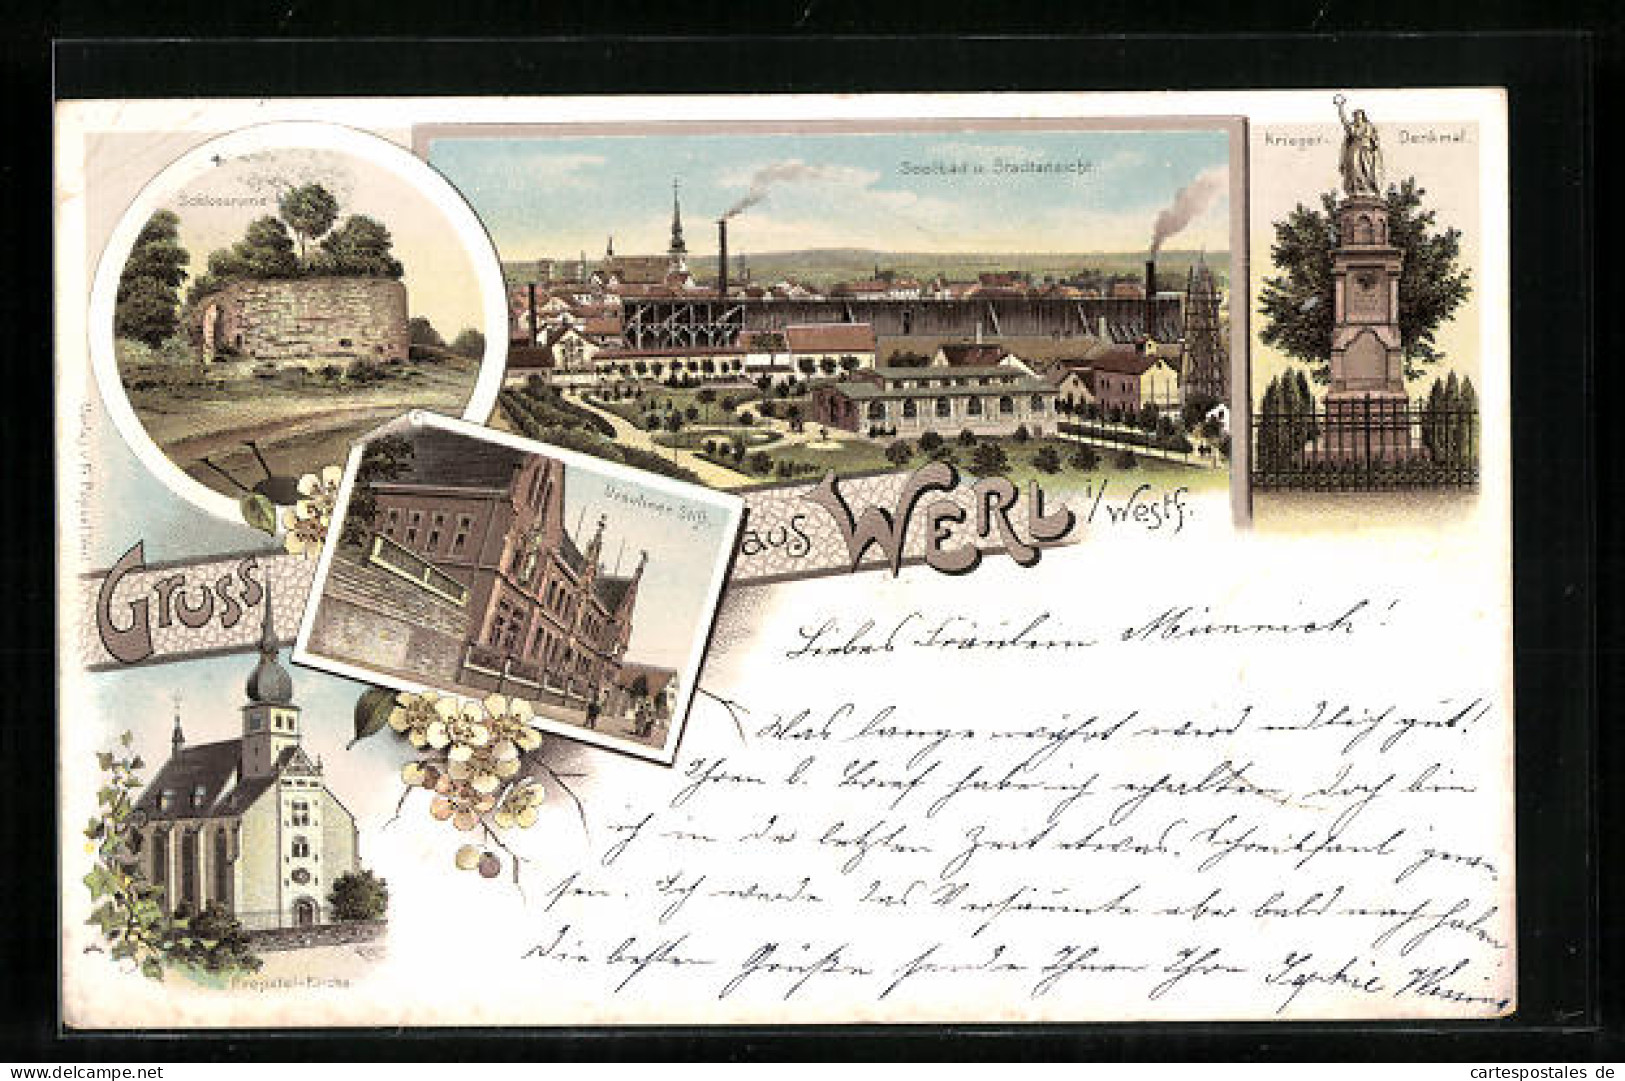 Schlossruine
Soolbad u. Stadtansicht.
Krieger- Denkmal.
Ursuliner Stift.
Gruss aus WERL i/Westf.
Propstei-Kirche
Liebes Fräulein Münnich!
Was lange währt wird endlich gut!
Ihren l. Brief habe ich erhalten, doch bin
ich in der letzten Zeit etwas schreibfaul gewe-
sen. Ich werde das Versäumte aber bald nachholen
Die besten Grüße sendet Ihnen Ihre Sophie
cartespostales de